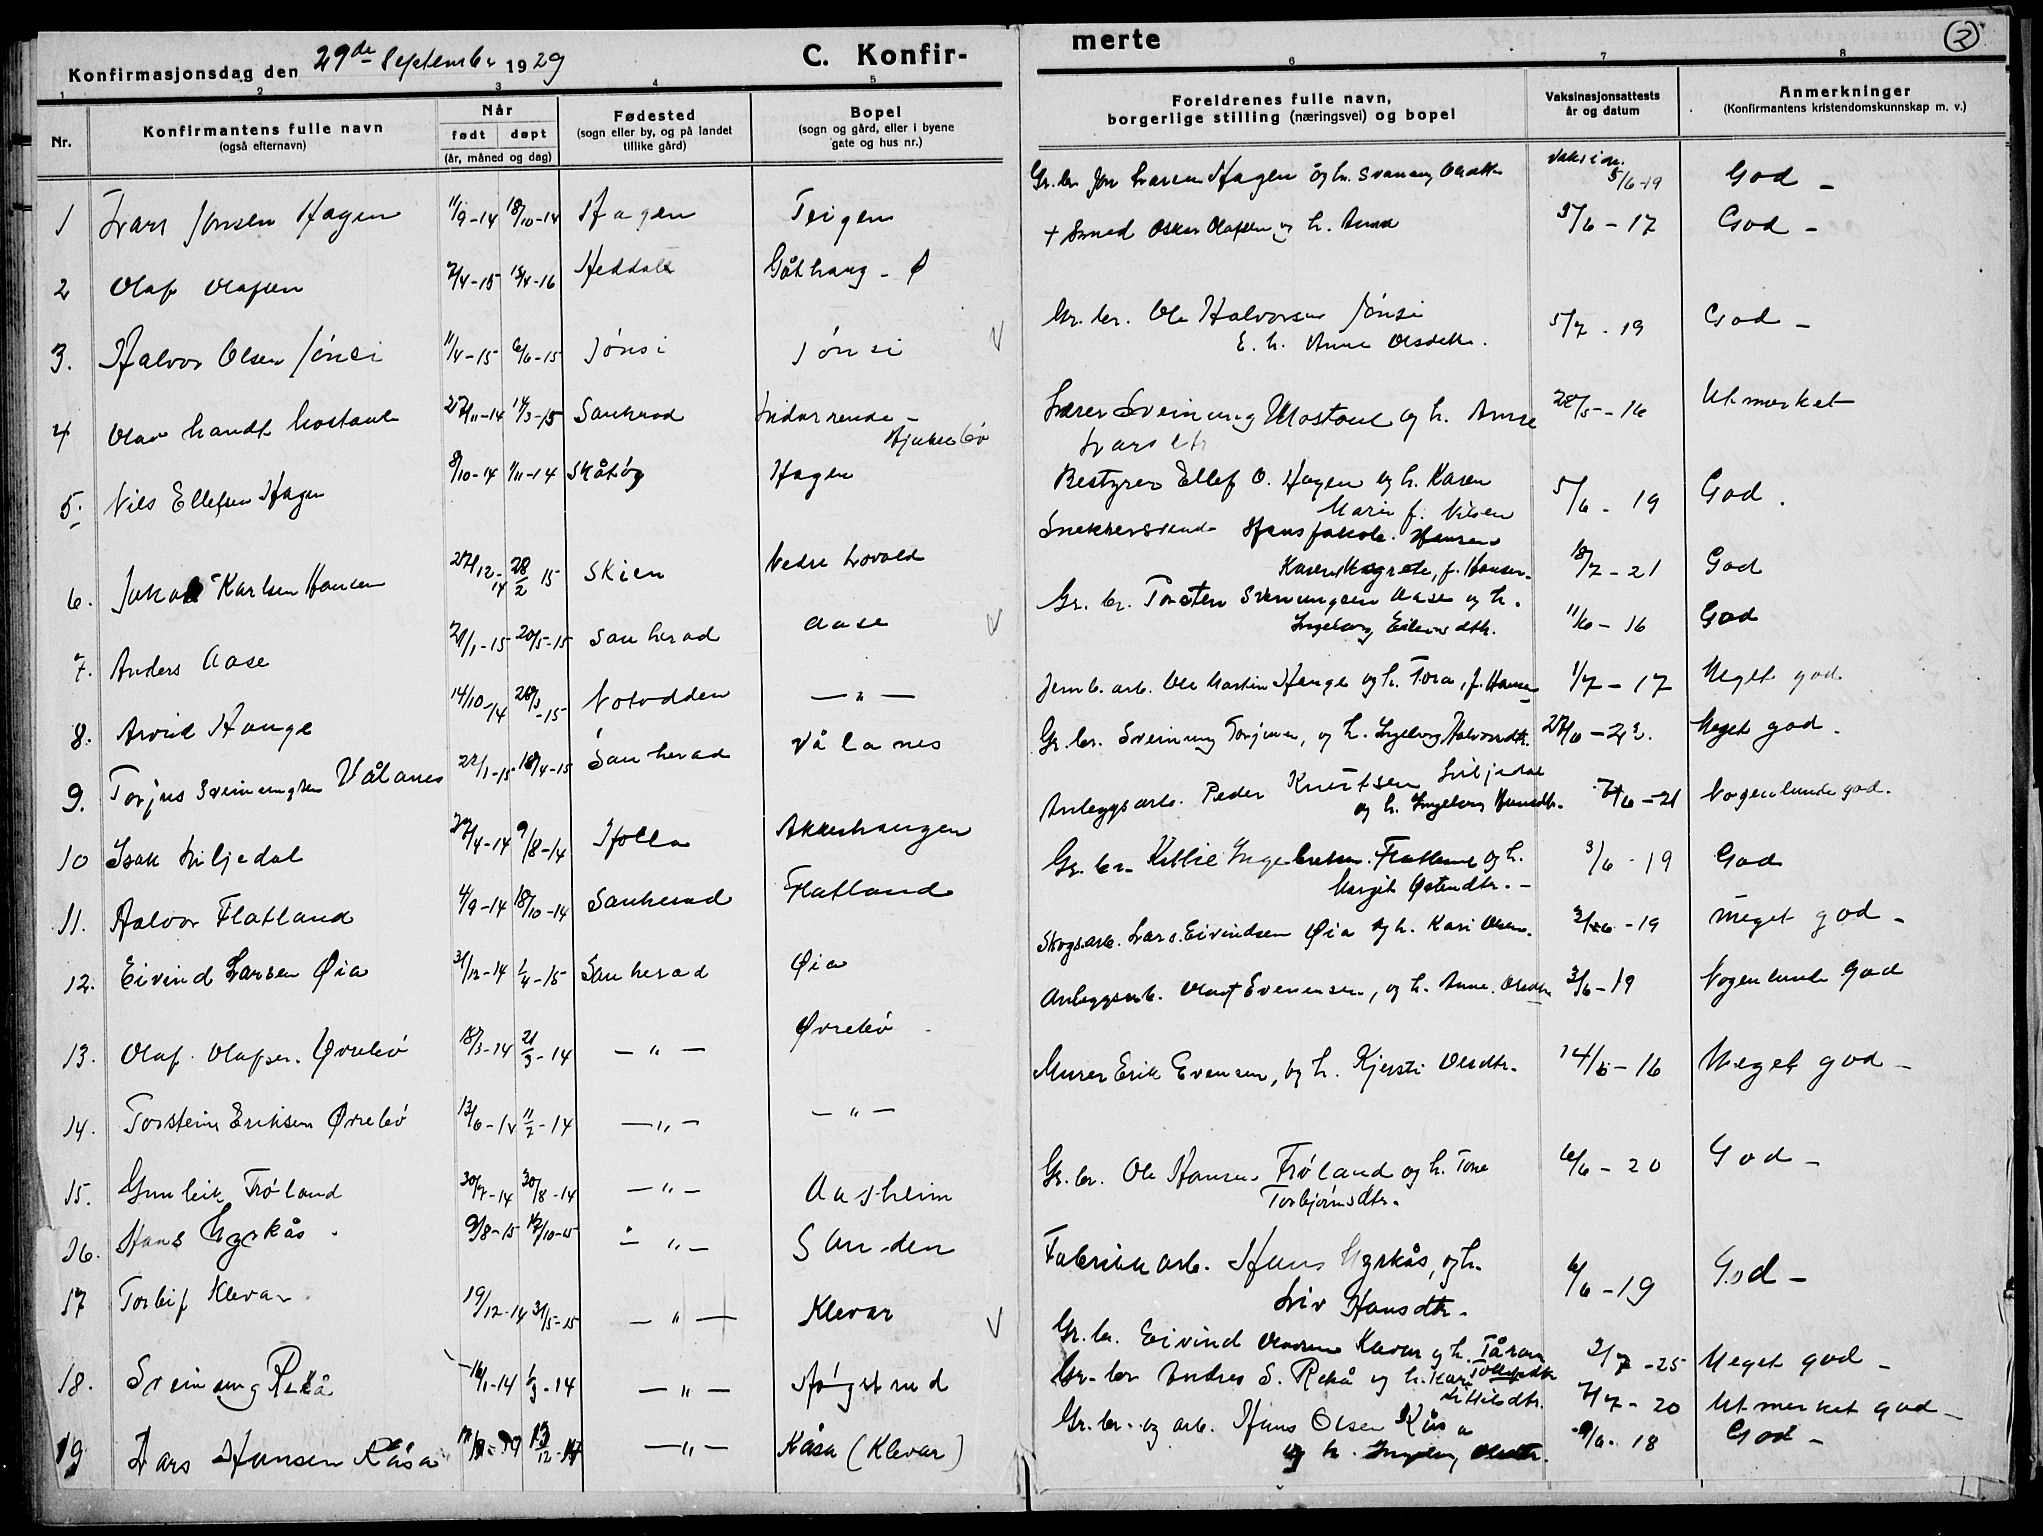 Konfirmasjonsdag den 29de September 1929
C. Konfir-
merte
2
1 2 3 4 5 6 7 8
Nr.
Konfirmantens fulle navn
(også efternavn)
Når
født døpt
(år, måned og dag)
Fødested
(sogn eller by, og på landet
tillike gård)
Bopel
(sogn og gård, eller i byene
gate og hus nr.)
Foreldrenes fulle navn,
borgerlige stilling (næringsvei) og bopel
Vaksinasjonsattests
år og datum
Anmerkninger
(Konfirmantens kristendomskunnskap m. v.)
1 Lars Jonsen Hagen 11/9-14 18/10-14 Hagen Teigen
Gr.br. Jon Larsen Hagen og h. Vaksin. 5/6-19 God -
2 Olaf Olafsen 2/4-15 Heddal Gåthaug - Ø
+ Smed Oskar Olafsen og h. Anna 5/6-17 God -
3. Halvor Olsen Jønsi 11/4-15 6/6-15 Jønsi Jønsi
Gr.br. Ole Halvorsen Jønsi
E. h. Anne Olsdtr. 5/7-19 God -
4 Olav 27/11-14 14/3-15 Sauherad
Hjuksebø
Lærer Sveinung Mostaul og h. Anne
Larsdtr 28/5-16 Utmerket
5. Nils Ellefsen Hagen 8/10-14 1/11-14 Skåtøy Hagen
Bestyrer Ellef O. Hagen og h. Karen
Marie f. Nilsen 5/6-19 God.
6. Jakob Karlsen Hansen 27/12-14 28/2 15 Skien Nedre Lovald
Snekkersvend Hans Jakob. Hansen
Karen Margrete, f. Hansen. 18/7-21 God
7. Anders Aase 21/1-15 20/5-15 Sauherad Aase
Gr.br. Torsten Sveinungsen Aase og h.
Ingeborg 11/6-16 God
8. Arvid Hauge 14/10-14 28/3-15 Notodden — " —
Jernb. arb. Ole Martin Hauge og h. Tora, f. Hansen 1/7-17 Meget god
9. Torjus Sveinungsen Vålanes 22/1-15 18/4-15 Sauherad Vålanes
Gr.br. Sveinung Torjusen, og h. Ingeborg Halvorsdtr. Meget god.
10 Isak Liljedal 22/4-14 9/8-14 Holla Akkerhaugen
Anleggsarb. Peder Knutsen Liljedal
og h. Ingeborg Hansdtr. 7/6-21 Nogenlunde god.
11. Halvor Flatland 4/9-14 18/10-14 Sauherad Flatland
Gr.br. Kittil Flatland og h.
Margit Østendtr. - 3/6-19 God
12. Eivind Larsen Øia 31/12-14 1/4-15 Sauherad Øia
Skogsarb. Lars Eivindsen Øia og h. Kari Olsen. 3/6-19 Meget god -
13. Olaf Olafsen Ørebø 18/3-14 21/3-14 — " — Øvrebø
Anleggsarb. Olaf Evensen, og h. Anne Olsdtr 3/6-19 Nogenlunde God
14. Torstein Eriksen Øvrebø 13/6-14 11/7-14 — " — — " —
Murer Erik Evensen, og h. Kjersti Olsdtr. 14/6-16 Meget god -
15. Gunleik Frøland 30/7-14 30/8-14 — " — Aasheim
Gr.br. Ole Hansen Frøland og h. Tone
Torbjørnsdtr. 6/6-20 God -
16. Hans Myrkås 9/8-15 17/10-15 — " — Sanden
Fabrikkarb. Hans Myrkås, og h.
Liv Hansdtr. 6/6-19 God -
17 Torleif Klevar 19/12-14 3/5-15 — " — Klevar
Gr.br. Eivind Klevar og h. Tåran
2/7-25 Meget god -
18. Sveinung Rekå 16/1-14 1/3-14 — " — Høgstrud
Gr.br Andres S. Rekå og h. Kari
Kittilsdtr. 7/7-20 Utmerket god -
19 Lars Hansen Kåsa — " — Kåsa (Klevar)
Gr.br. og arb. Hans Olsen Kåsa
og h. Ingeborg Olsdtr. 9/6-18 God -